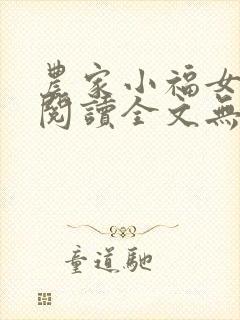 農家小福女
閱讀全文無
童道馳